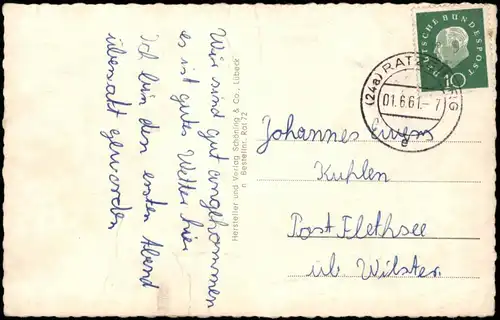 Wir sind gut angekommen
es ist gutes Wetter hier
Ich bin den ersten Abend
übernatt geworden
Hersteller und Verlag Schöning & Co., Lübeck
n Bestellnr. Rat 72
DEUTSCHE BUNDESPOST
10
(24a) RATZEBURG
01.6.61.-7
d
Johannes
Kuhlen
Post Flethsee
üb Wilster